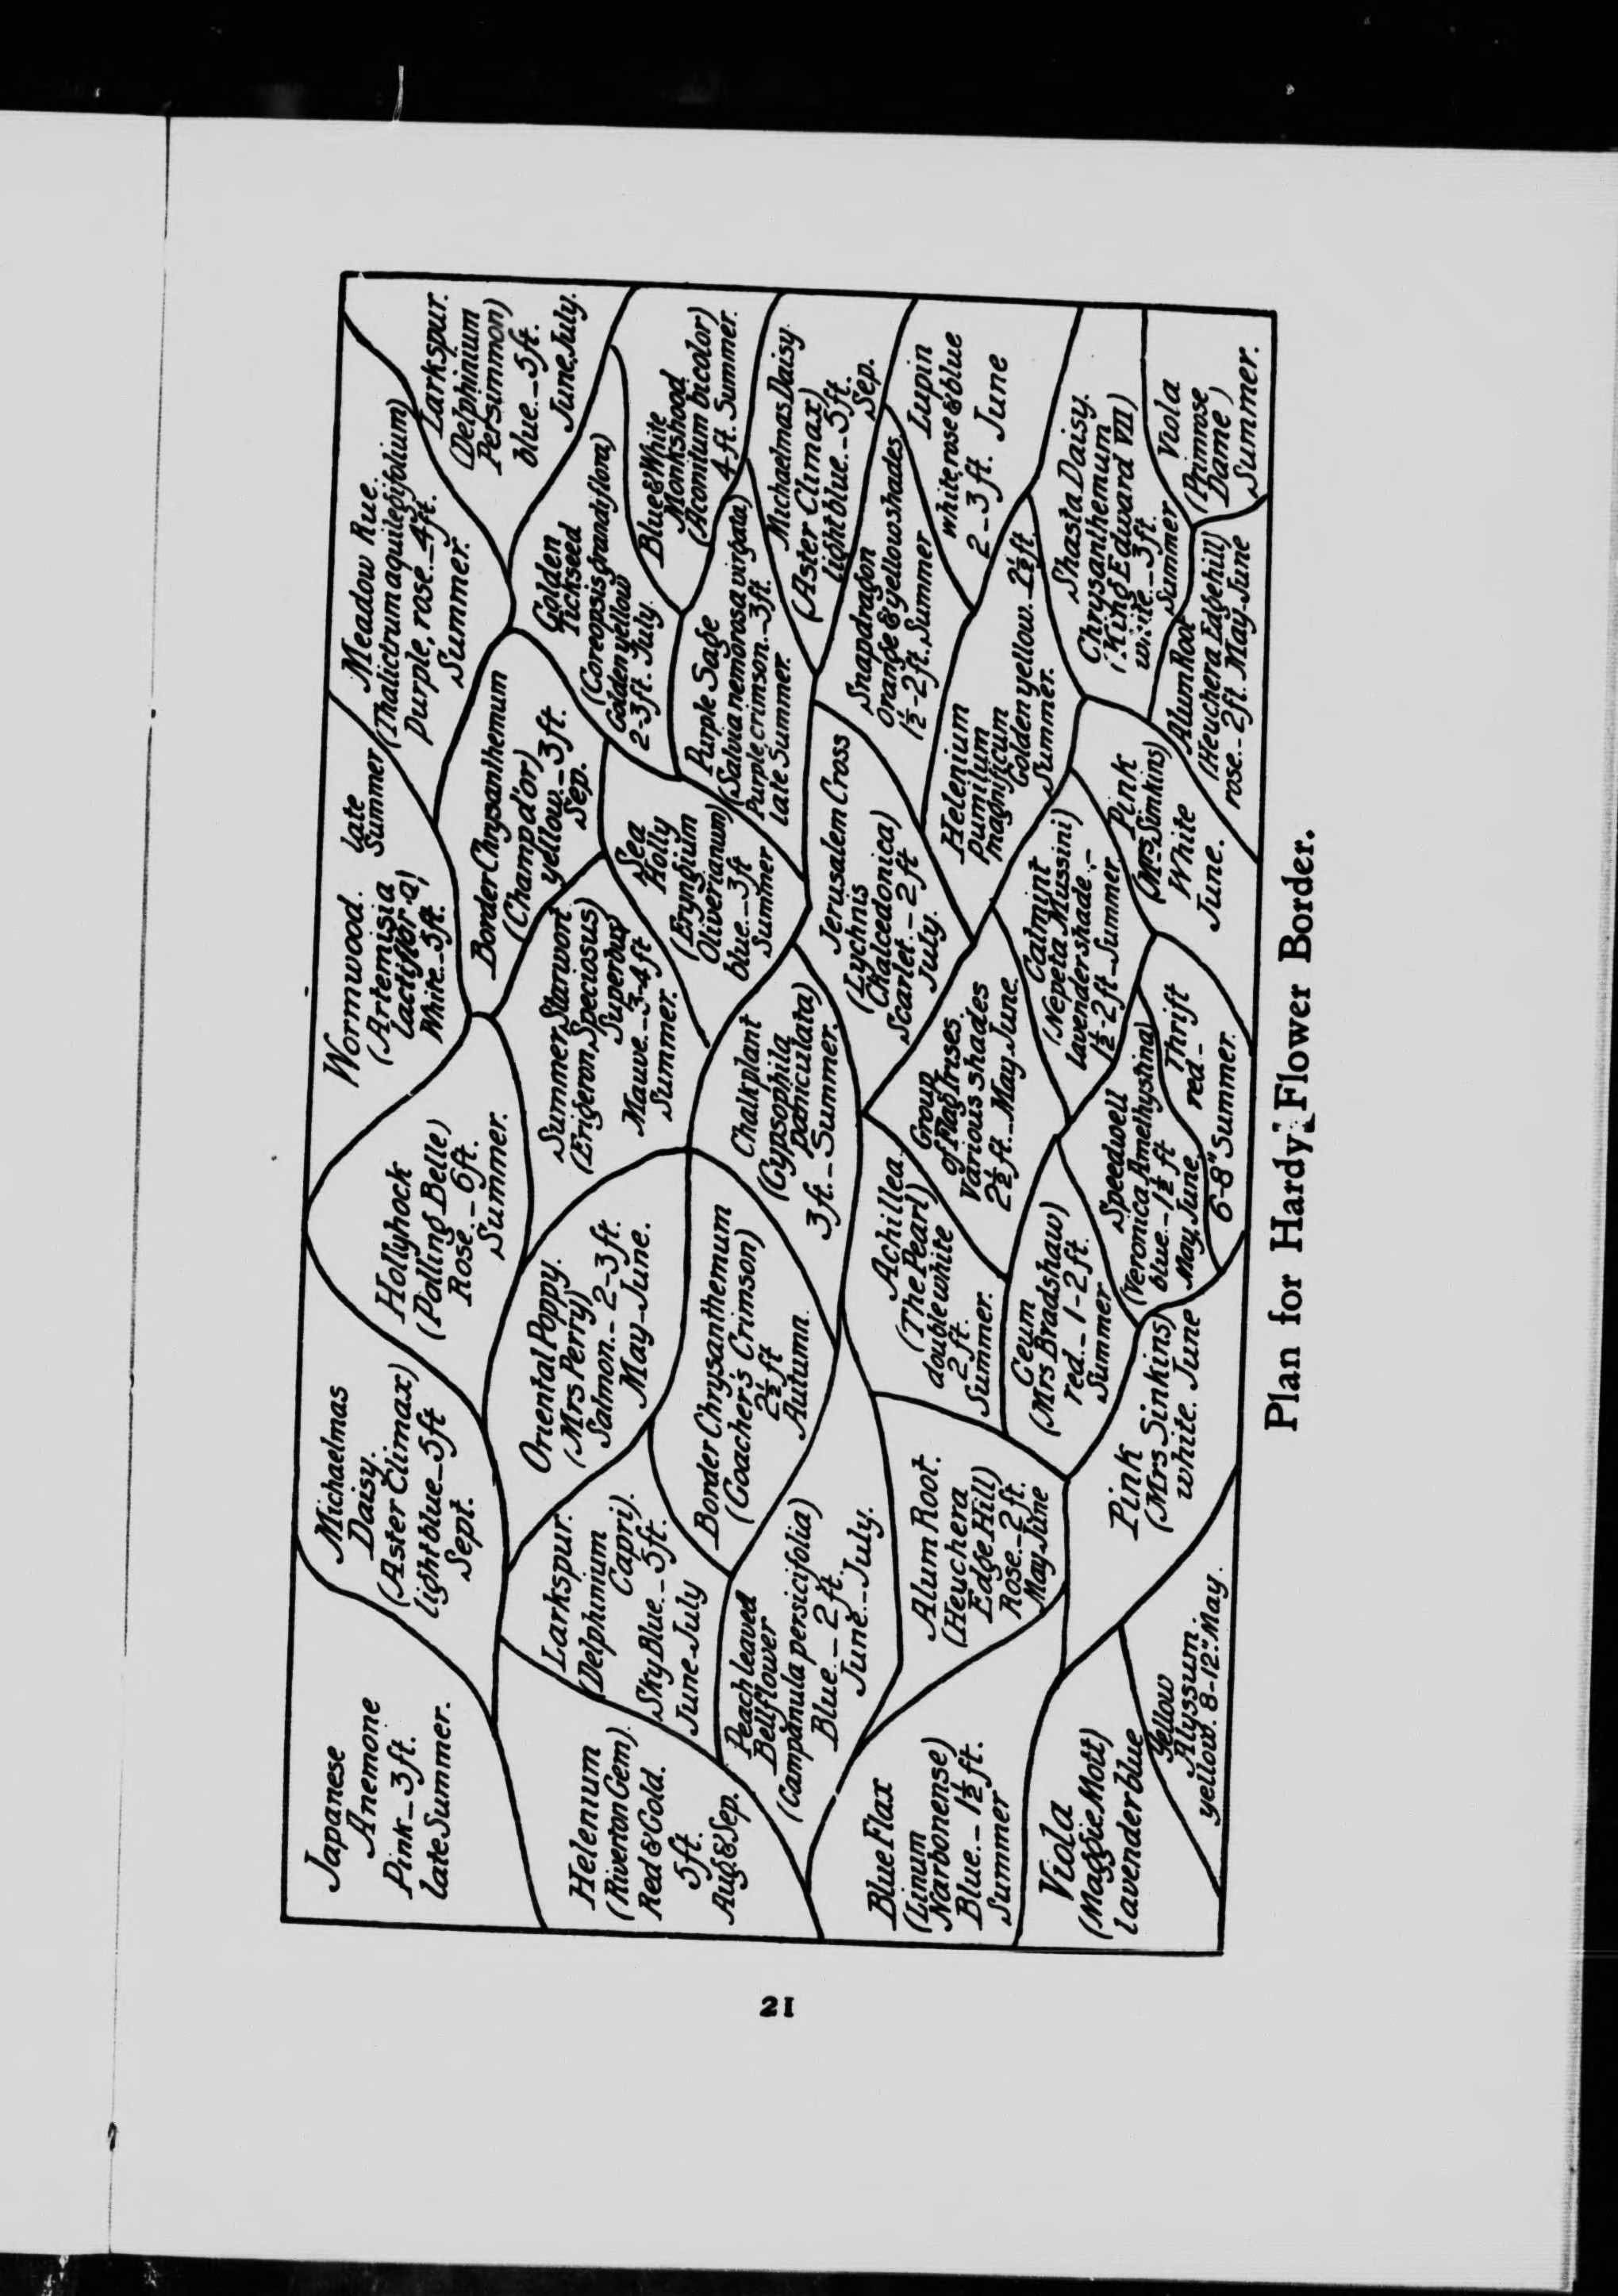 Japanese
Anemone
Pink_3ft.
late Summer.
Michaelmas
Daisy.
(Aster Climax)
light blue_5ft
Sept.
Hollyhock
(Palling Belle)
Rose_6ft.
Summer.
Wormwood.
(Artemisia
lactiflora)
White_5ft.
late
Summer
Meadow Rue.
(Thalictrum aquilegifolium)
Purple, rose_4ft.
Summer.
Larkspur.
(Delphinium
Persimmon)
blue_5ft.
June, July.
Helenium
(Riverton Gem).
Red & Gold.
5ft.
Aug & Sep.
Larkspur.
(Delphinium
Capri).
Sky Blue_5ft.
June-July
Oriental Poppy.
(Mrs Perry)
Salmon_2-3ft.
May-June.
Summer Starwort
(Erigeron Speciosus)
Superbus
Mauve_3-4ft
Summer.
Border Chrysanthemum
(Champ d'or)
yellow_3ft.
Sep.
Golden
Tickseed
(Coreopsis grandiflora)
Golden yellow
2-3ft. July.
Blue & White
Monkshood
(Aconitum bicolor)
4ft. Summer.
Peach leaved
Bellflower
(Campanula persicifolia)
Blue_2ft.
June_July.
Border Chrysanthemum
(Goacher's Crimson)
2½ft
Autumn.
Chalkplant
(Gypsophila
paniculata)
3ft._Summer.
Sea
Holly
(Eryngium
Oliverianum)
blue_3ft
Summer
Purple Sage
(Salvia nemorosa virgata)
Purple crimson_3ft.
late Summer.
Michaelmas Daisy.
(Aster Climax)
light blue_5ft.
Sep.
Blue Flax
(Linum
Narbonense)
Blue_1½ft.
Summer
Alum Root.
(Heuchera
Edge Hill)
Rose_2ft.
May June
Achillea.
(The Pearl)
double white
2ft.
Summer.
Group
of Flag Irises.
Various shades
2½ft_May June.
Jerusalem Cross
(Lychnis
Chalcedonica)
Scarlet_2ft
July.
Snapdragon
orange & yellow shades
1½-2ft. Summer
Lupin
white rose & blue
2-3ft. June
Viola
(Maggie Mott)
lavender blue
Pink
(Mrs Sinkins)
white. June
Geum
(Mrs Bradshaw)
red_1-2ft.
Summer
Speedwell
(Veronica Amethystina)
blue_1½ft
May, June.
Catmint
(Nepeta Mussini)
lavender shade_
1½-2ft_Summer
Helenium
pumilum
magnificum
Golden yellow. 2½ft
Summer.
Shasta Daisy.
Chrysanthemum
(King Edward VII)
white_3ft.
Summer
Yellow
Alyssum.
yellow. 8-12". May.
Thrift
red_
6-8" Summer.
Pink
(Mrs Simkins)
White
June.
Alum Root
(Heuchera Edgehill)
rose_2ft. May June
Viola
(Primrose
Dame)
Summer.
Plan for Hardy Flower Border.
21